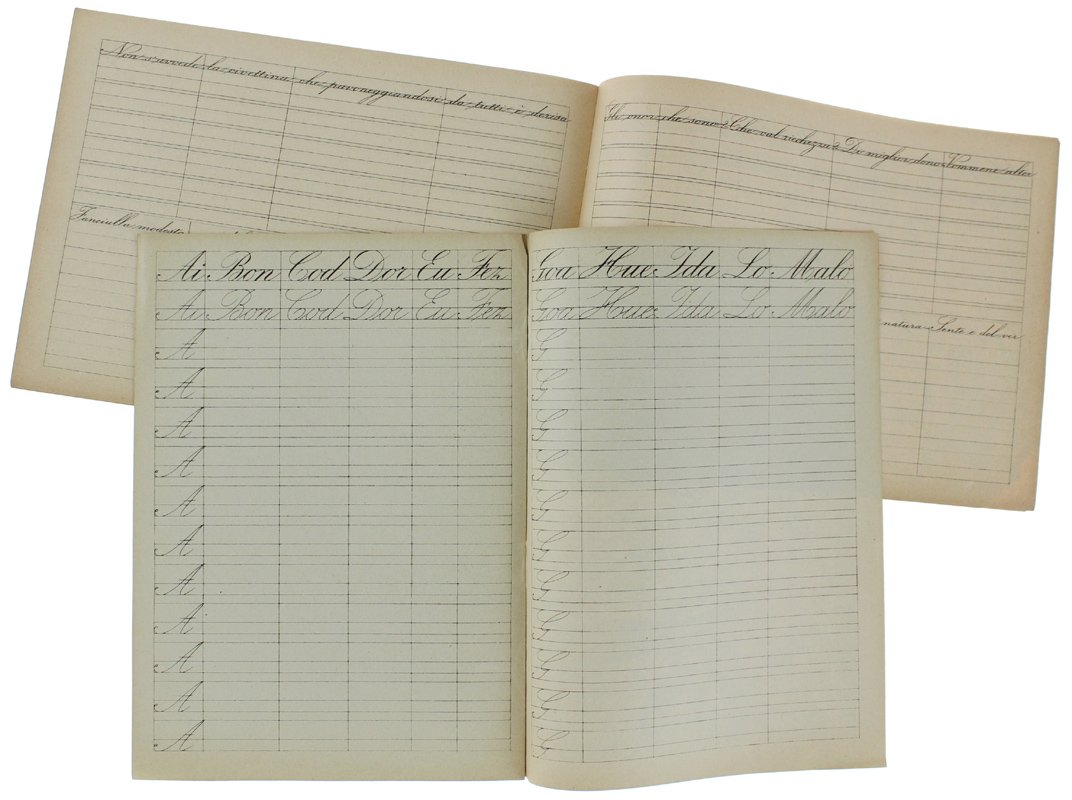 Non s'avvede la civettina che pavoneggiandosi da tutti è derisa
Fanciulla modesta
Gli onor che sono? Che val richezza? Di miglior dono Vommene altier
natura Sente e del ver
Ai Bon Cod Dor Eu Fez
Ai Bon Cod Dor Eu Fez
A
A
A
A
A
A
A
A
A
A
A
Goa Hue Ida Lo Malo
Goa Hue Ida Lo Malo
G
G
G
G
G
G
G
G
G
G
G